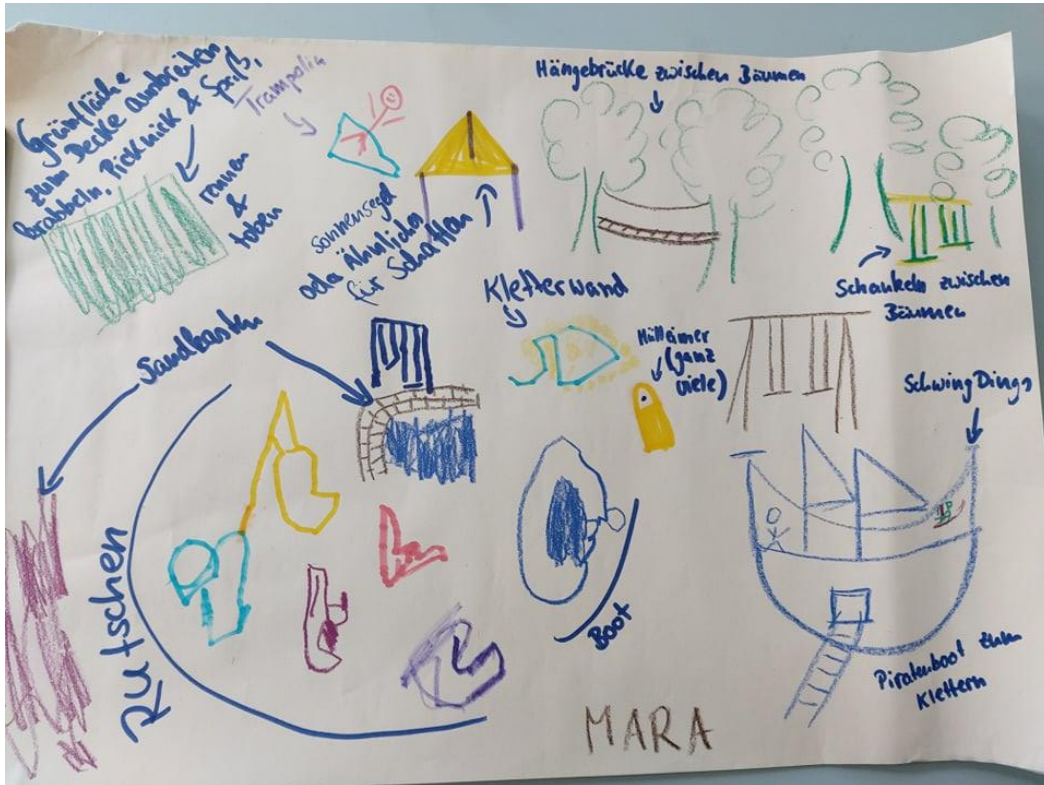 Grünfläche
zum Decke ausbreiten
Krabbeln, Picknick & Spaß,
rennen
&
toben
Trampolin
Sonnensegel
oda Ähnliches
für Schatten
Hängebrücke zwischen Bäumen
Schaukeln zwischen
Bäumen
Kletterwand
Mülleimer
(ganz
viele)
Sandkasten
SchwingDings
Rutschen
Boot
Piratenboot zum
Klettern
MARA